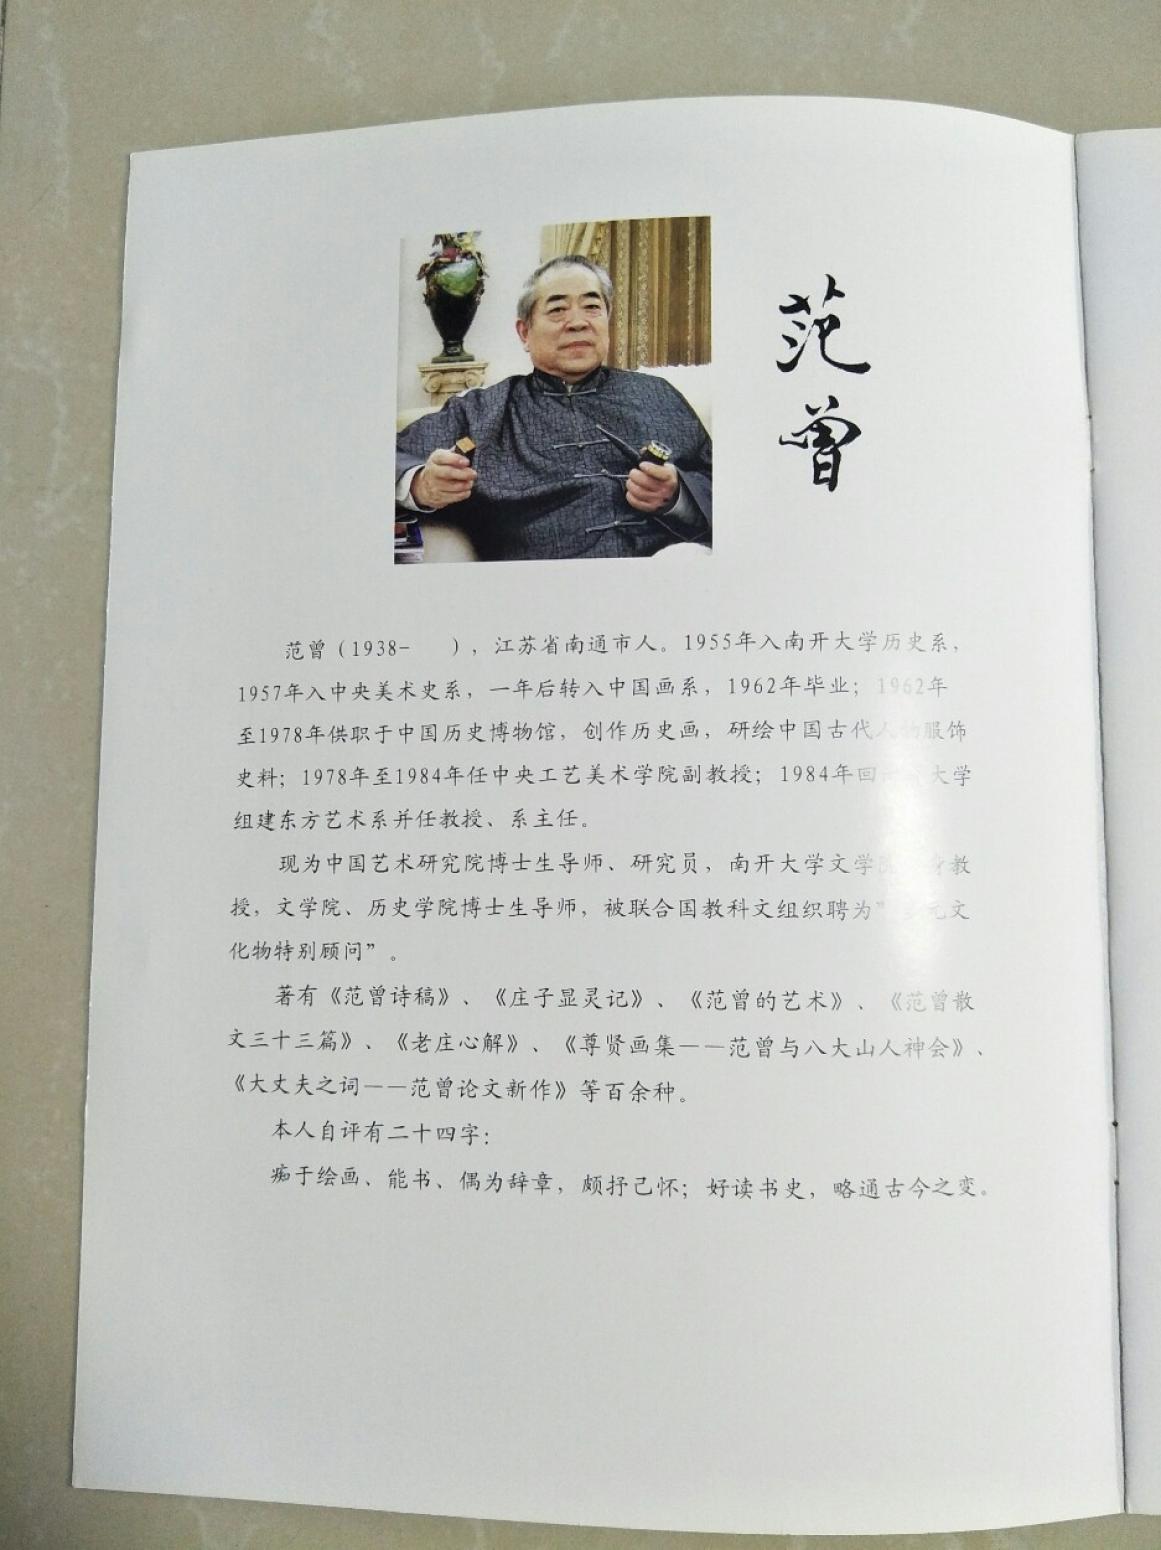 范曾
范曾（1938-　），江苏省南通市人。1955年入南开大学历史系，
1957年入中央美术史系，一年后转入中国画系，1962年毕业；1962年
至1978年供职于中国历史博物馆，创作历史画，研绘中国古代人物服饰
史料；1978年至1984年任中央工艺美术学院副教授；1984年回 大学
组建东方艺术系并任教授、系主任。
现为中国艺术研究院博士生导师、研究员，南开大学文学院 身教
授，文学院、历史学院博士生导师，被联合国教科文组织聘为”多元文
化物特别顾问”。
著有《范曾诗稿》、《庄子显灵记》、《范曾的艺术》、《范曾散
文三十三篇》、《老庄心解》、《尊贤画集——范曾与八大山人神会》、
《大丈夫之词——范曾论文新作》等百余种。
本人自评有二十四字：
痴于绘画、能书、偶为辞章，颇抒己怀；好读书史，略通古今之变。